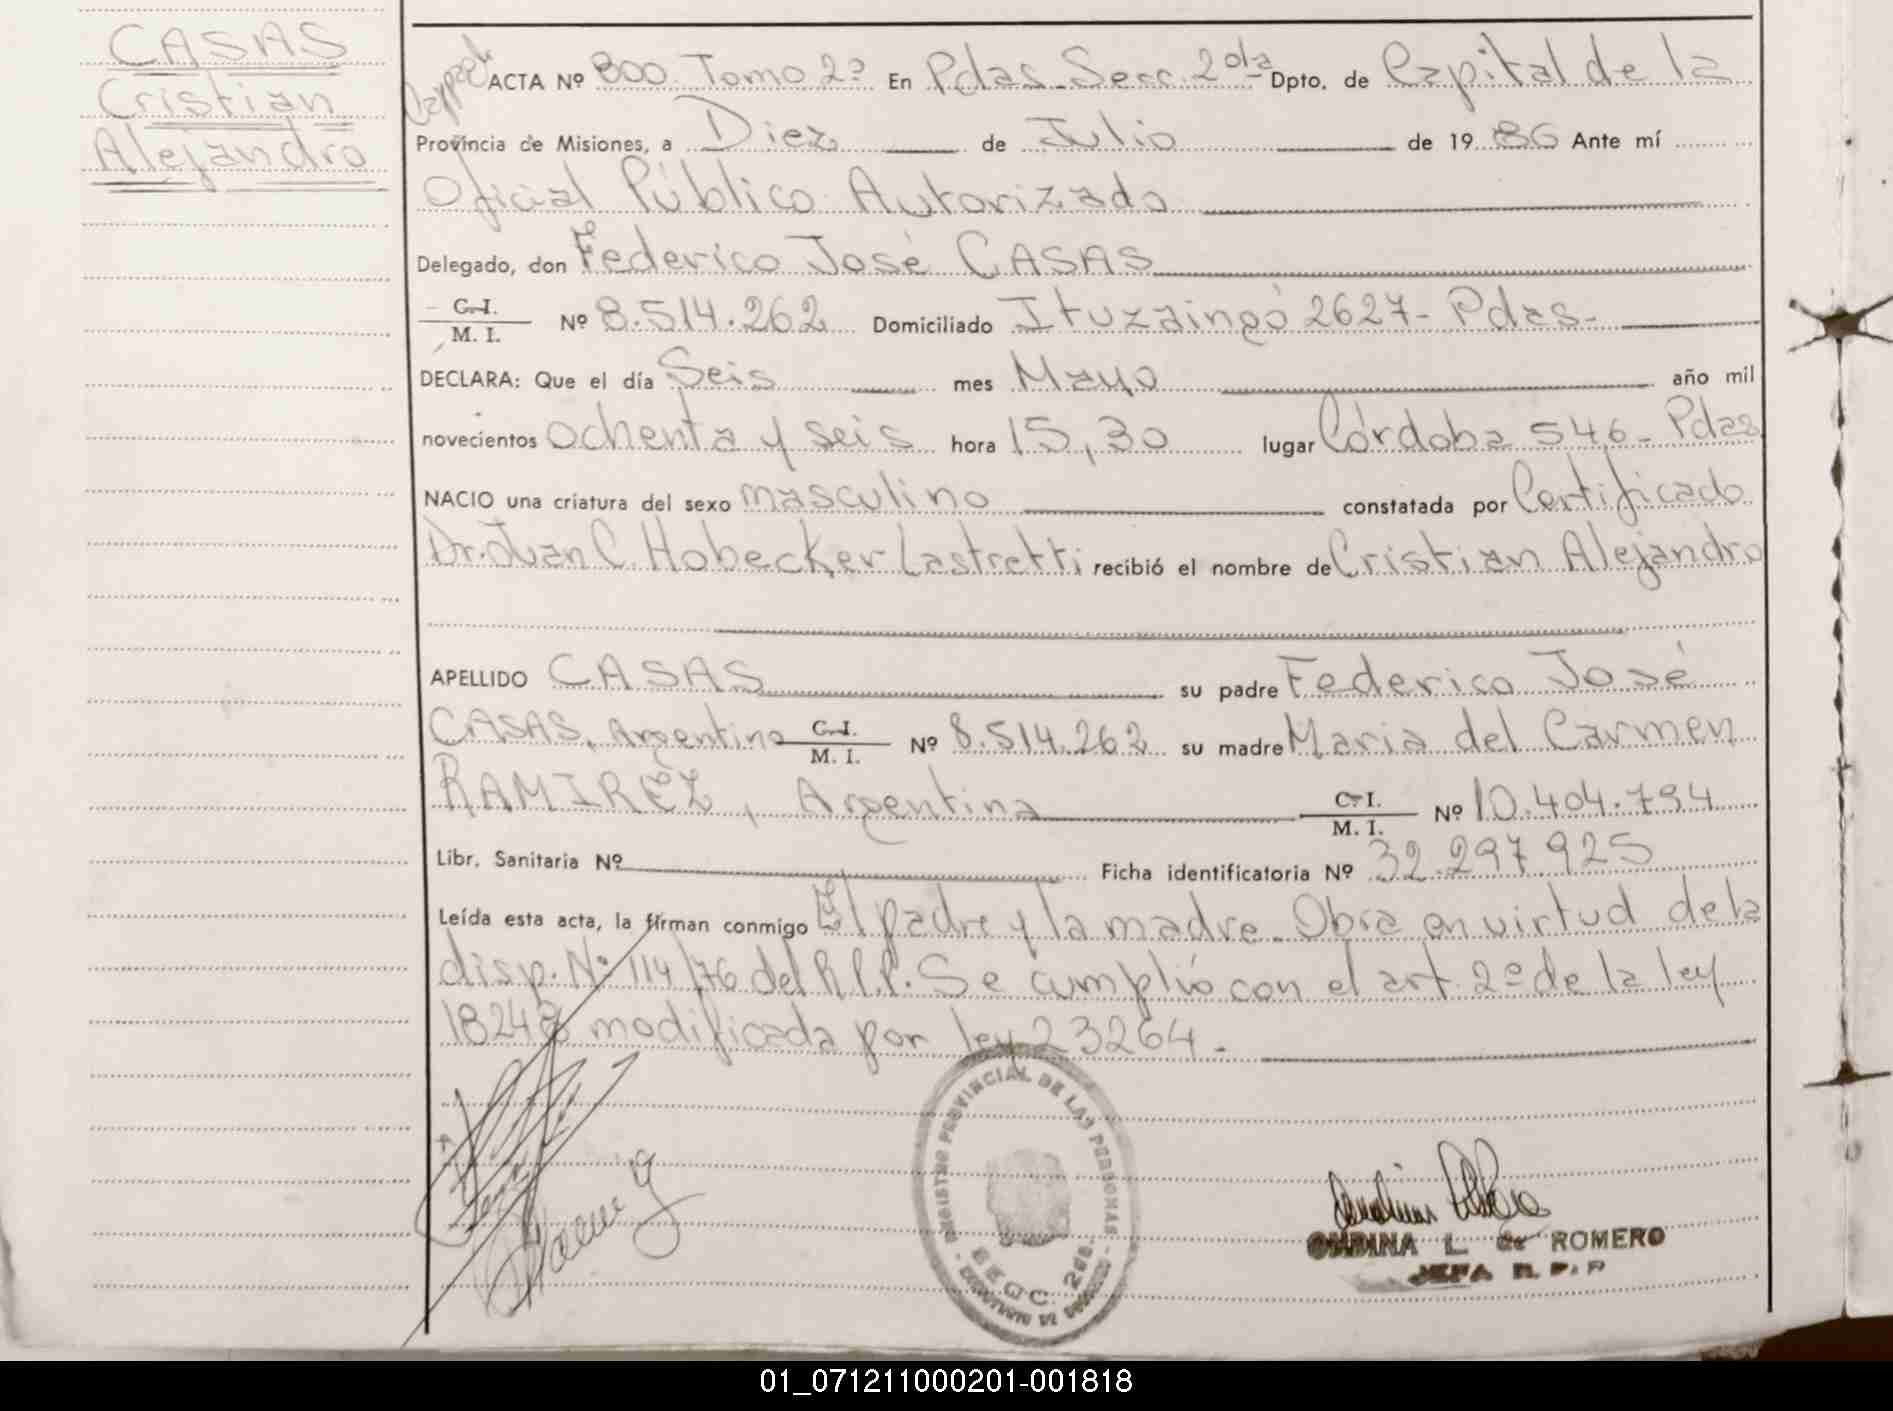 CASAS
Cristian
Alejandro
ACTA Nº 800 Tomo 2º En Pdas. Secc. 2da Dpto. de Capital de la
Provincia de Misiones, a Diez de Julio de 1986 Ante mí
Oficial Público Autorizado
Delegado, don Federico José CASAS
C. I.
M. I. Nº 8.514.262 Domiciliado Ituzaingó 2627- Pdas-
DECLARA: Que el día Seis mes Mayo año mil
novecientos ochenta y seis hora 15,30 lugar Córdoba 546- Pdas
NACIO una criatura del sexo masculino constatada por Certificado
Dr. Juan C. Hobecker Lastretti recibió el nombre de Cristian Alejandro
APELLIDO CASAS su padre Federico José
CASAS, Argentino C. I. M. I. Nº 8.514.262 su madre Maria del Carmen
RAMIREZ, Argentina C. I. M. I. Nº 10.404.794
Libr. Sanitaria Nº Ficha identificatoria Nº 32.297.925
Leída esta acta, la firman conmigo El padre y la madre. Obra en virtud de la
disp. Nº 114/76 del R.P.P. Se cumplió con el art. 2º de la ley
18248 modificada por ley 23264.-
REGISTRO PROVINCIAL DE LAS PERSONAS
SECC. 2da.
L. de ROMERO
JEFA R. P. P
01_071211000201-001818